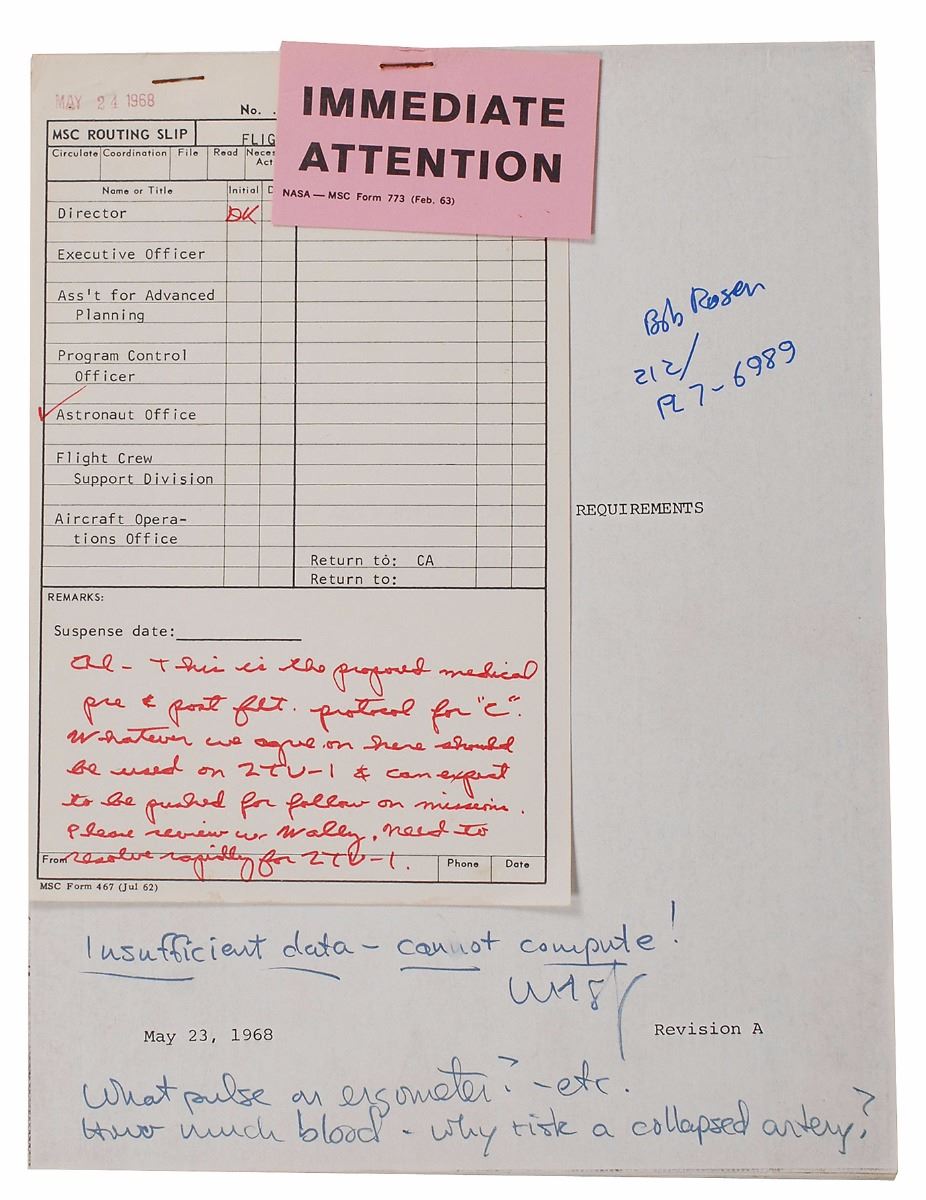 MAY 24 1968
No.
MSC ROUTING SLIP
FLIG
Circulate Coordination File Read Neces
Act
Name or Title Initial D
Director DK
Executive Officer
Ass't for Advanced
Planning
Program Control
Officer
Astronaut Office
Flight Crew
Support Division
Aircraft Opera-
tions Office
Return to: CA
Return to:
REMARKS:
Suspense date:
Al - This is the proposed medical
pre & post flt. protocol for "C".
Whatever we agree on here should
be used on 2TV-1 & can expect
to be pushed for follow on missions.
Please review w. Wally. Need to
resolve rapidly for 2TV-1.
From Phone Date
MSC Form 467 (Jul 62)
IMMEDIATE
ATTENTION
NASA — MSC Form 773 (Feb. 63)
Bob Rosen
212/
PL 7-6989
REQUIREMENTS
Insufficient data - cannot compute!
May 23, 1968
Revision A
What pulse on ergometer? - etc.
How much blood - why risk a collapsed artery?